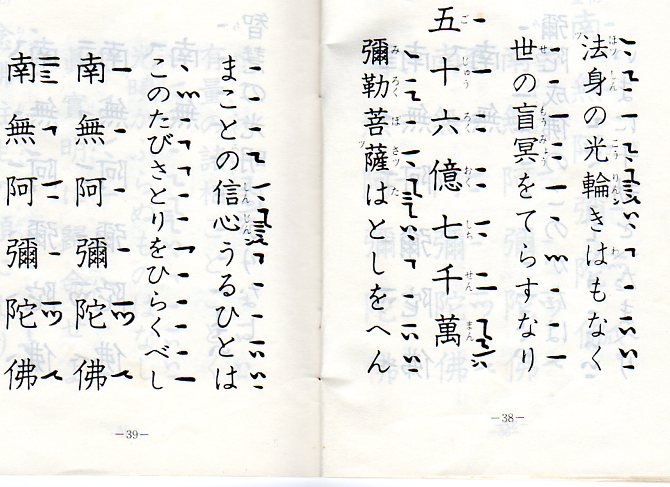 法身の光輪きはもなく
世の盲冥をてらすなり
五十六億七千萬
彌勒菩薩はとしをへん
－38－
まことの信心うるひとは
このたびさとりをひらくべし
南無阿彌陀佛
南無阿彌陀佛
－39－